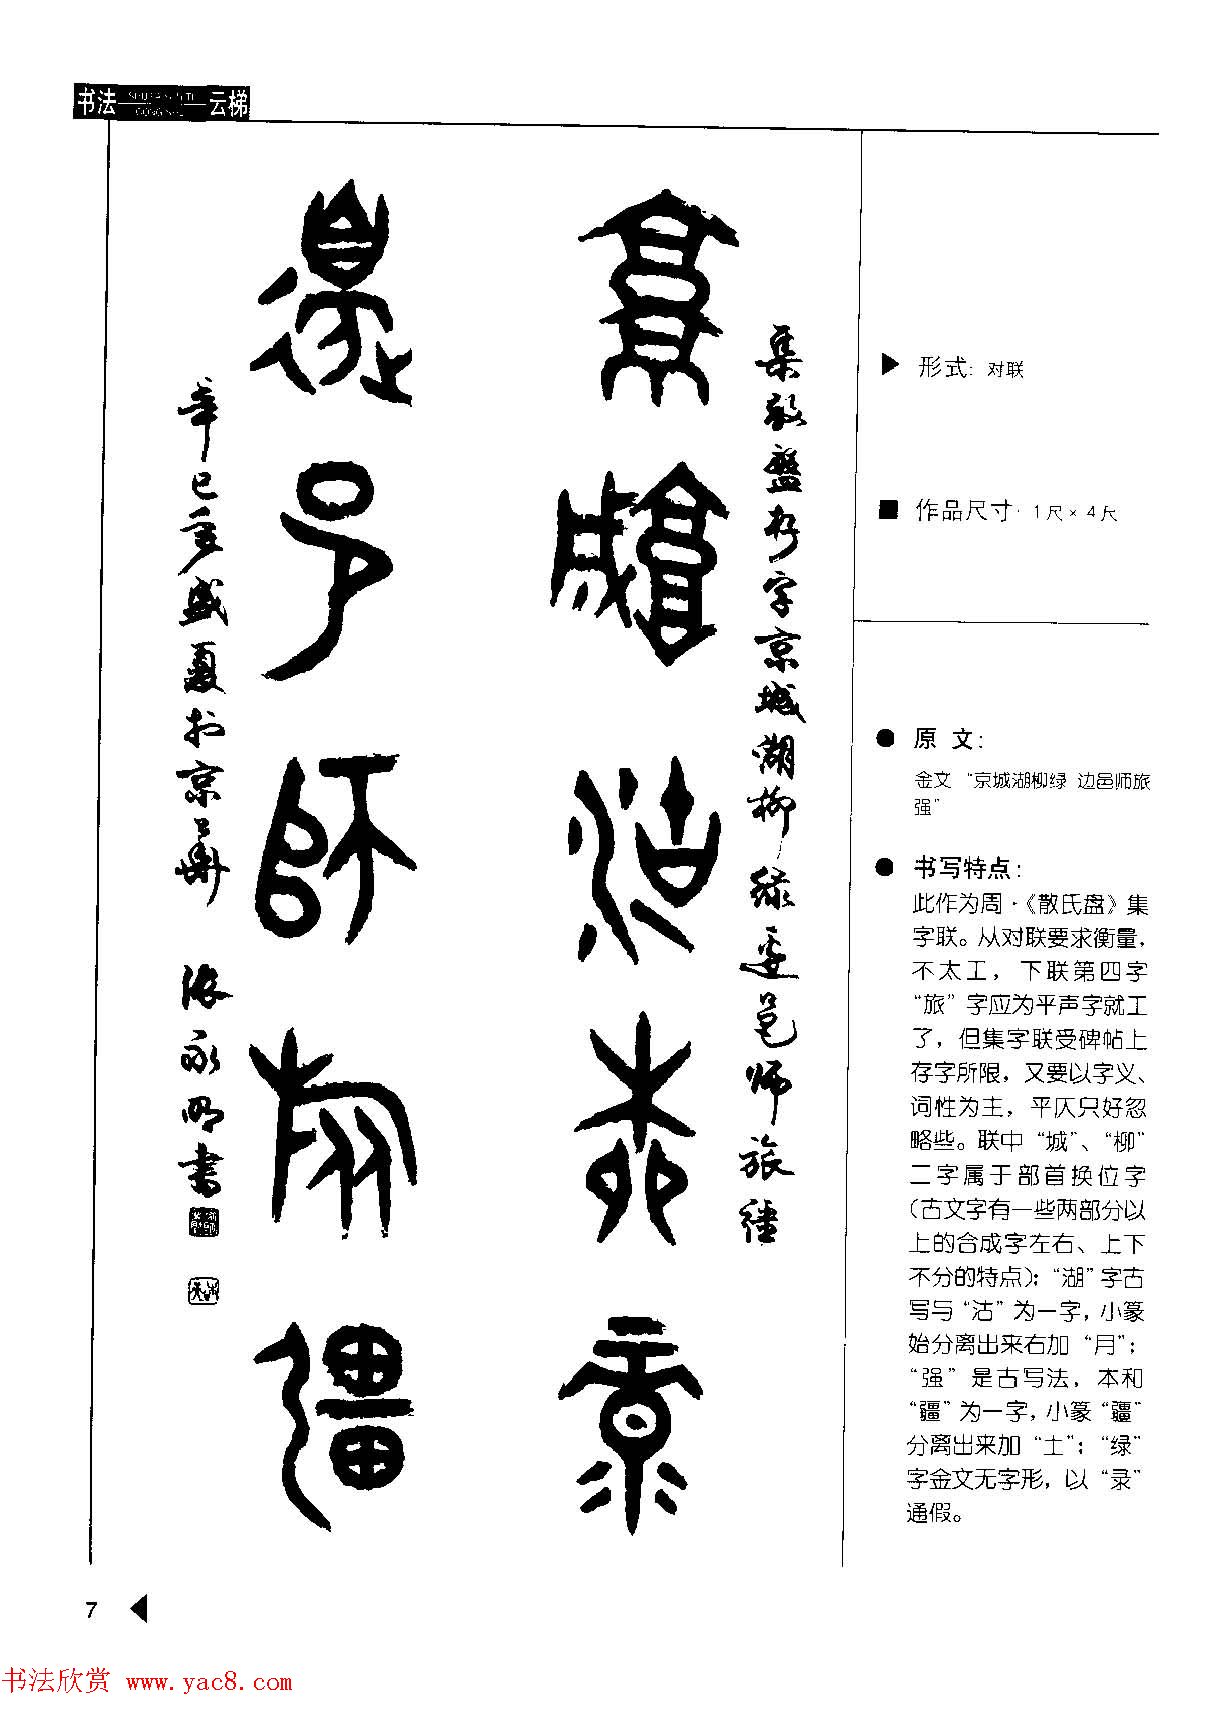 书法 云梯
京城湖柳绿
边邑师旅强
集散盘存字京城湖柳绿边邑师旅疆
辛巳年盛夏于京
张永明书
▶ 形式: 对联
■ 作品尺寸·1尺×4尺
● 原 文:
金文 “京城湖柳绿 边邑师旅
强”
● 书写特点:
此作为周·《散氏盘》集
字联。从对联要求衡量,
不太工, 下联第四字
“旅”字应为平声字就工
了, 但集字联受碑帖上
存字所限, 又要以字义、
词性为主, 平仄只好忽
略些。联中“城”、“柳”
二字属于部首换位字
(古文字有一些两部分以
上的合成字左右、上下
不分的特点); “湖”字古
写与“沽”为一字, 小篆
始分离出来右加“月”;
“强”是古写法, 本和
“疆”为一字, 小篆“疆”
分离出来加“土”; “绿”
字金文无字形, 以“录”
通假。
7 ◀
书法欣赏 www.yac8.com